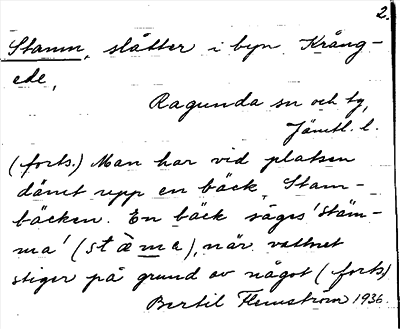 2.
Stamm, slåtter i byn Krång-
ede,
Ragunda sn och tg,
Jämtl. l.
(forts.) Man har vid platsen
dämt upp en bäck, Stam-
bäcken. En bäck säges 'stäm-
ma' (stàma), när vattnet
stiger på grund av något (forts)
Bertil Flemström 1936.